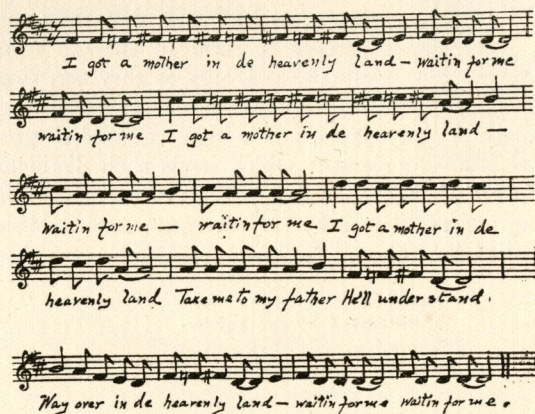 I got a mother in de heavenly land – waitin for me
waitin for me I got a mother in de heavenly land —
waitin for me — waitin for me I got a mother in de
heavenly land Take me to my father He'll understand.
Way over in de heavenly land – waitin for me waitin for me.